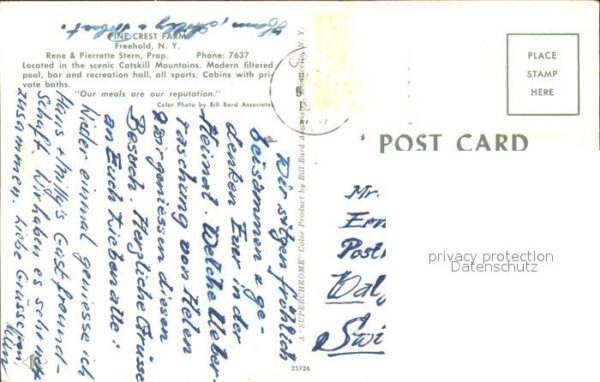 PINE CREST FARM
Freehold, N. Y.
Rene & Pierrette Stern, Prop. Phone: 7637
Located in the scenic Catskill Mountains. Modern filtered
pool, bar and recreation hall, all sports. Cabins with pri-
vate baths.
"Our meals are our reputation."
Color Photo by Bill Bard Associates
PLACE
STAMP
HERE
POST CARD
A "SUPERCHROME" Color Product by Bill Bard Associates, N. Y.
25726
Wir sitzen fröhlich
beisammen u. ge-
denken Eur in der
Heimat. Welche Ueber-
raschung von Helen
wir geniessen diesen
Besuch. Herzliche Grüsse
an Euch Lieben alle!
Wieder einmal geniesse ich
Hans + Milly's Gastfreund-
schaft. Wir haben es sehr nett
zusammen. Liebe Grusse
Mr.
Ern
Post
Swi
privacy protection
Datenschutz